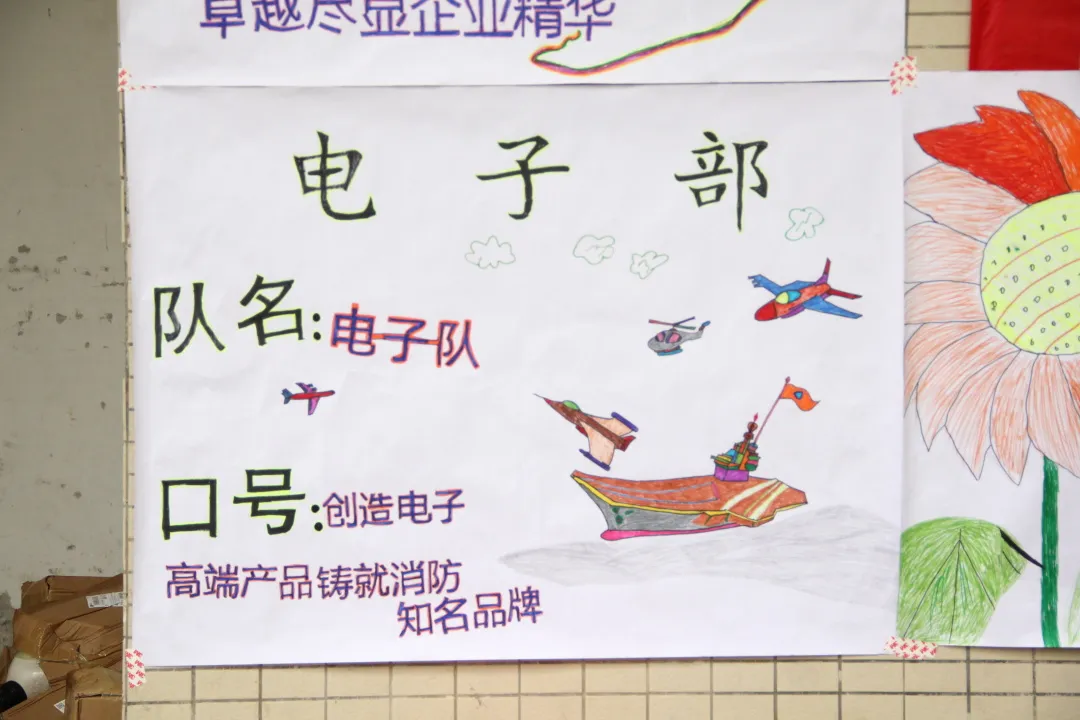 卓越尽显企业精华
电子部
队名:电子队
口号:创造电子
高端产品铸就消防
知名品牌